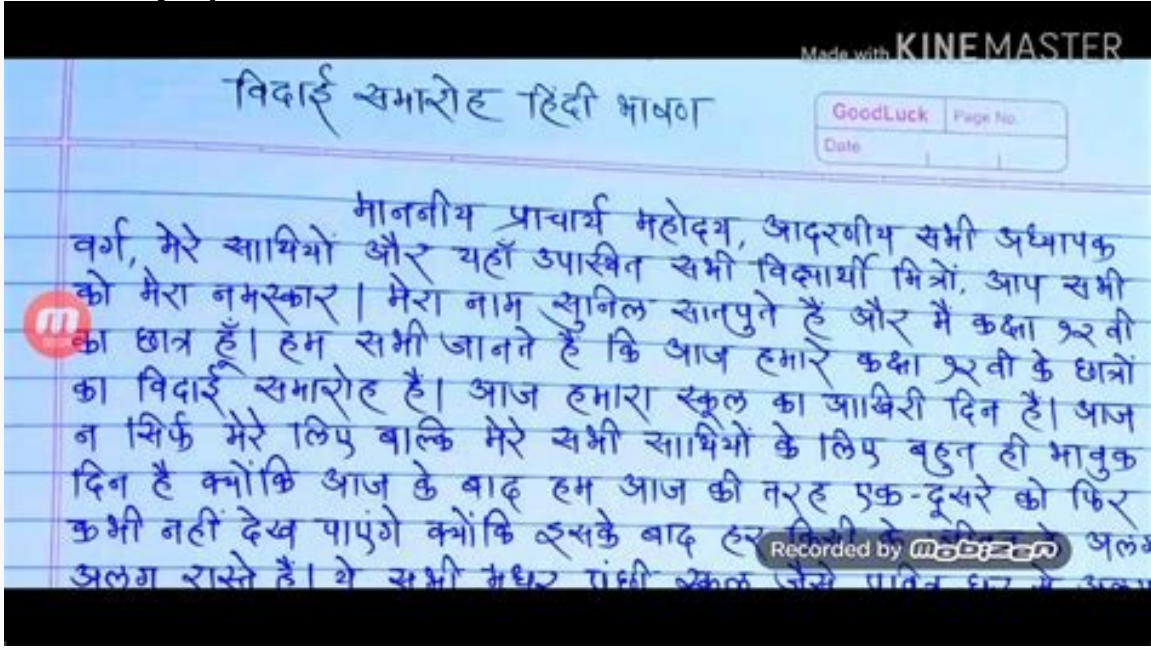 Made with KINEMASTER
विदाई समारोह हिंदी भाषण
GoodLuck Page No.
Date
माननीय प्राचार्य महोदय, आदरणीय सभी अध्यापक
वर्ग, मेरे साथियों और यहाँ उपास्थित सभी विद्यार्थी मित्रों, आप सभी
को मेरा नमस्कार | मेरा नाम सुनिल सातपुते है और मै कक्षा १२ वी
का छात्र हूँ| हम सभी जानते है कि आज हमारे कक्षा १२ वी के छात्रों
का विदाई समारोह है| आज हमारा स्कूल का आखिरी दिन है| आज
न सिर्फ मेरे लिए बाल्कि मेरे सभी साथियों के लिए बहुत ही भावुक
दिन है क्योंकि आज के बाद हम आज की तरह एक-दूसरे को फिर
कभी नहीं देख पाएंगे क्योंकि इसके बाद हर अलग
Recorded by mobizen
अलग रास्ते है| ये सभी मधुर पंछी स्कूल जैसे